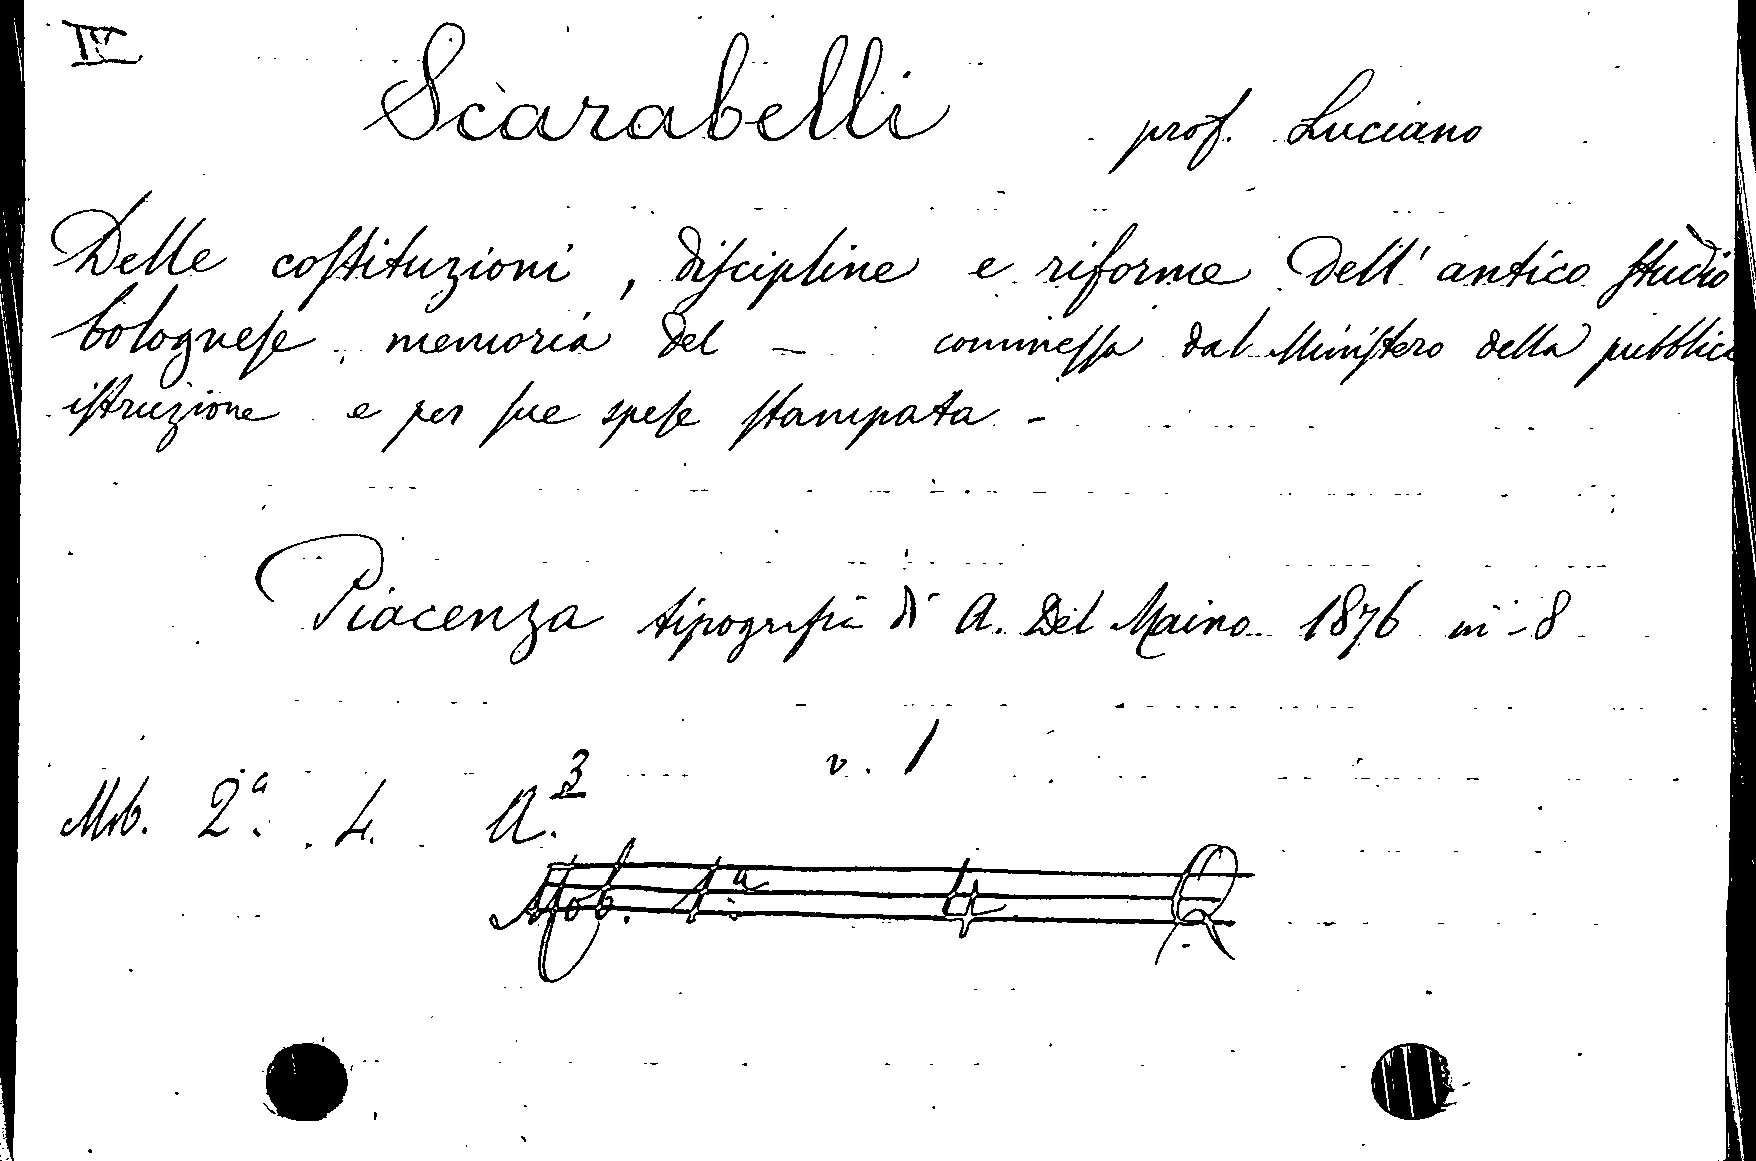 IV
Scarabelli prof. Luciano
Delle costituzioni, discipline e riforme dell' antico studio
bolognese memoria del – commessa dal Ministero della pubblica
istruzione e per sue spese stampata –
Piacenza tipografia di A. Del Maino 1876 in-8
v. 1
Mob. 2ª. 4. A.3
Mob. 1ª. 4 Q